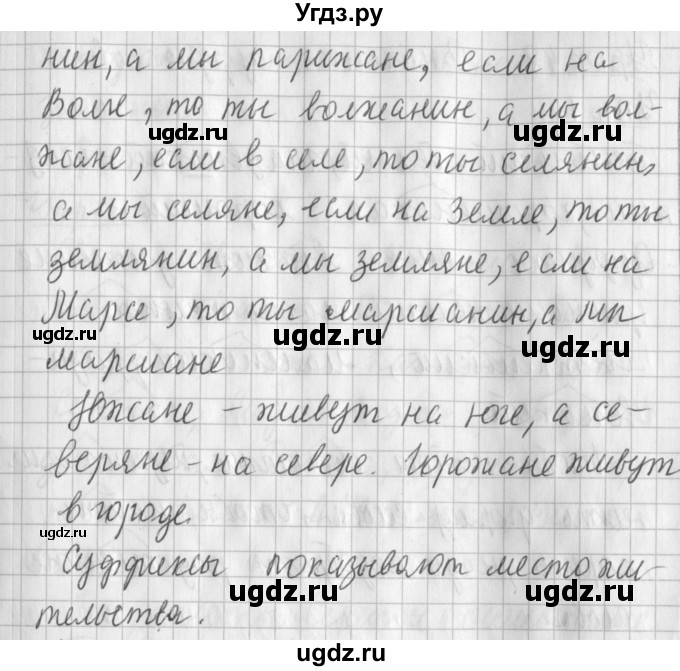 Угдз.ру
нин, а мы парижане, если на
Волге, то ты волжанин, а мы вол-
ugdz.ru
ugdz.ru
жане, если в селе, то ты селянин,
а мы селяне, если на Земле, то ты
землянин, а мы земляне, если на
Марсе, то ты марсианин, а мы
ugdz.ru
ugdz.ru
ugdz.ru
марсиане
Южане - живут на юге, а се-
веряне - на севере. Горожане живут
в городе.
ugdz.ru
Суффиксы показывают место жи-
ugdz.ru
ugdz.ru
тельства.
ugdz.ru